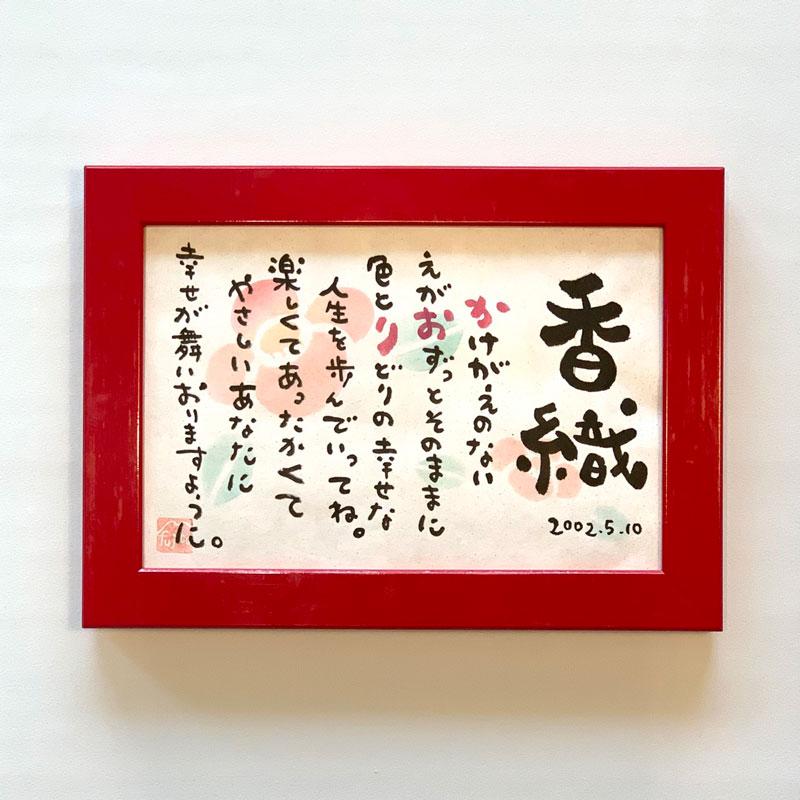 香織
2002.5.10
かけがえのない
えがおずっとそのままに
色とりどりの幸せな
人生を歩んでいってね。
楽しくてあったかくて
やさしいあなたに
幸せが舞いおりますように。